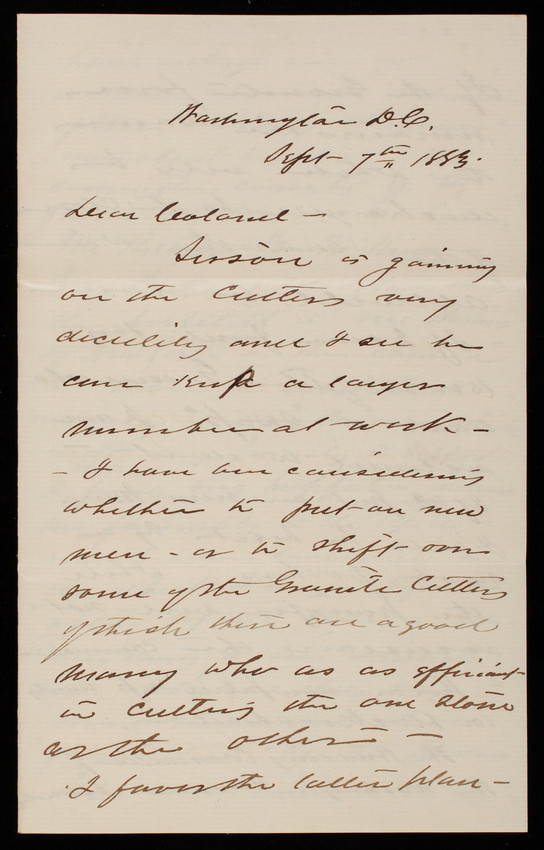 Washington D.C.
Sept 7th 1883.
Dear Colonel -
Sisson is gaining
on the Cutters very
decidedly and I see he
can keep a larger
number at work -
- I have been considering
whether to put on new
men - or to shift over
some of the Granite Cutters
of which there are a good
many who as as efficient
in cutting the one stone
as the other -
I favor the latter plan -